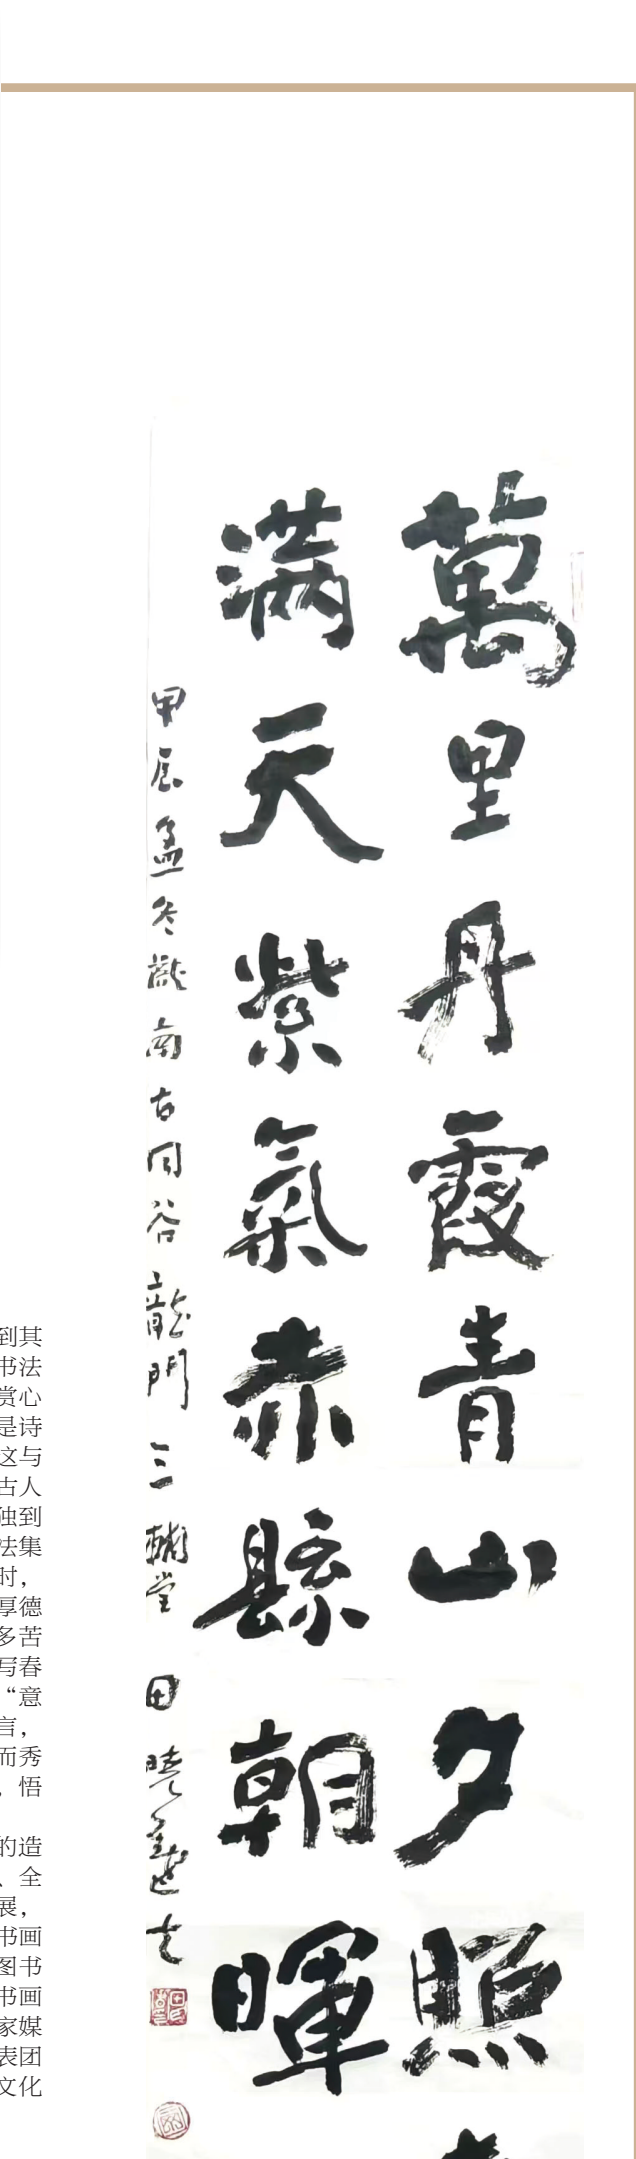 萬里丹霞青山夕照
满天紫氣赤縣朝暉
甲辰孟冬隴南古同谷龍門三輔堂田曉
到其
书法
赏心
是诗
这与
古人
独到
法集
时，
厚德
多苦
写春
“意
言，
而秀
，悟
的造
、全
展，
书画
图书
书画
家媒
表团
文化